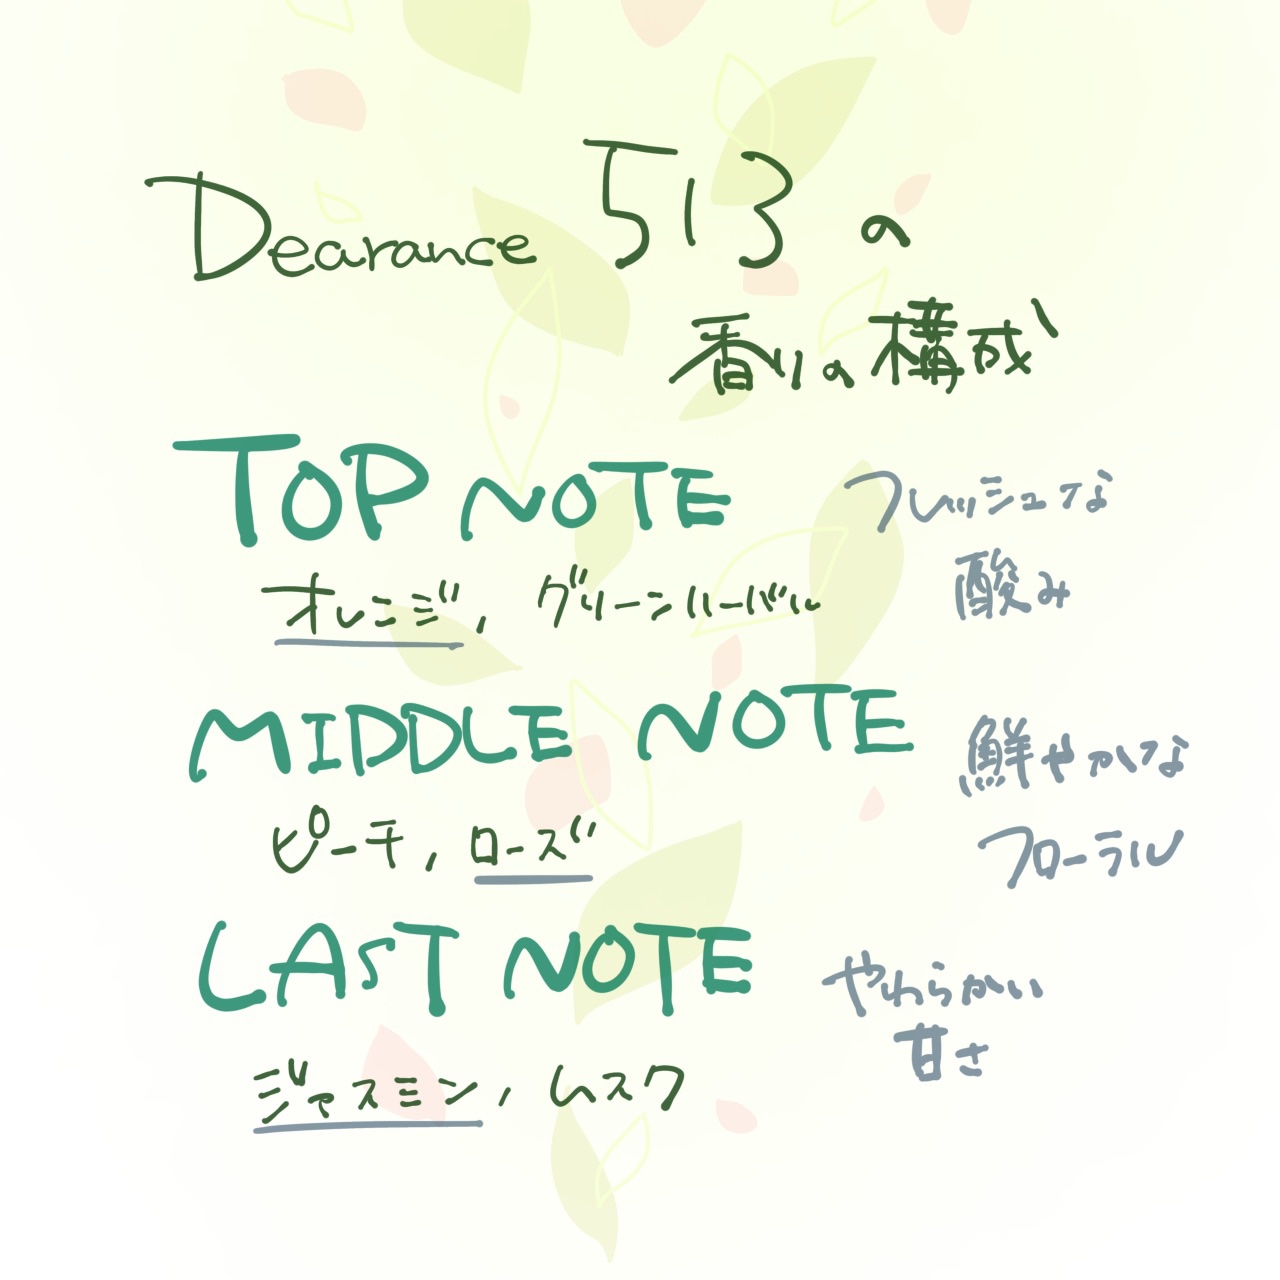 Dearance 513 の
香りの構成
TOP NOTE
フレッシュな
酸み
オレンジ, グリーンハーバル
MIDDLE NOTE
鮮やかな
フローラル
ピーチ, ローズ
LAST NOTE
やわらかい
甘さ
ジャスミン, ムスク